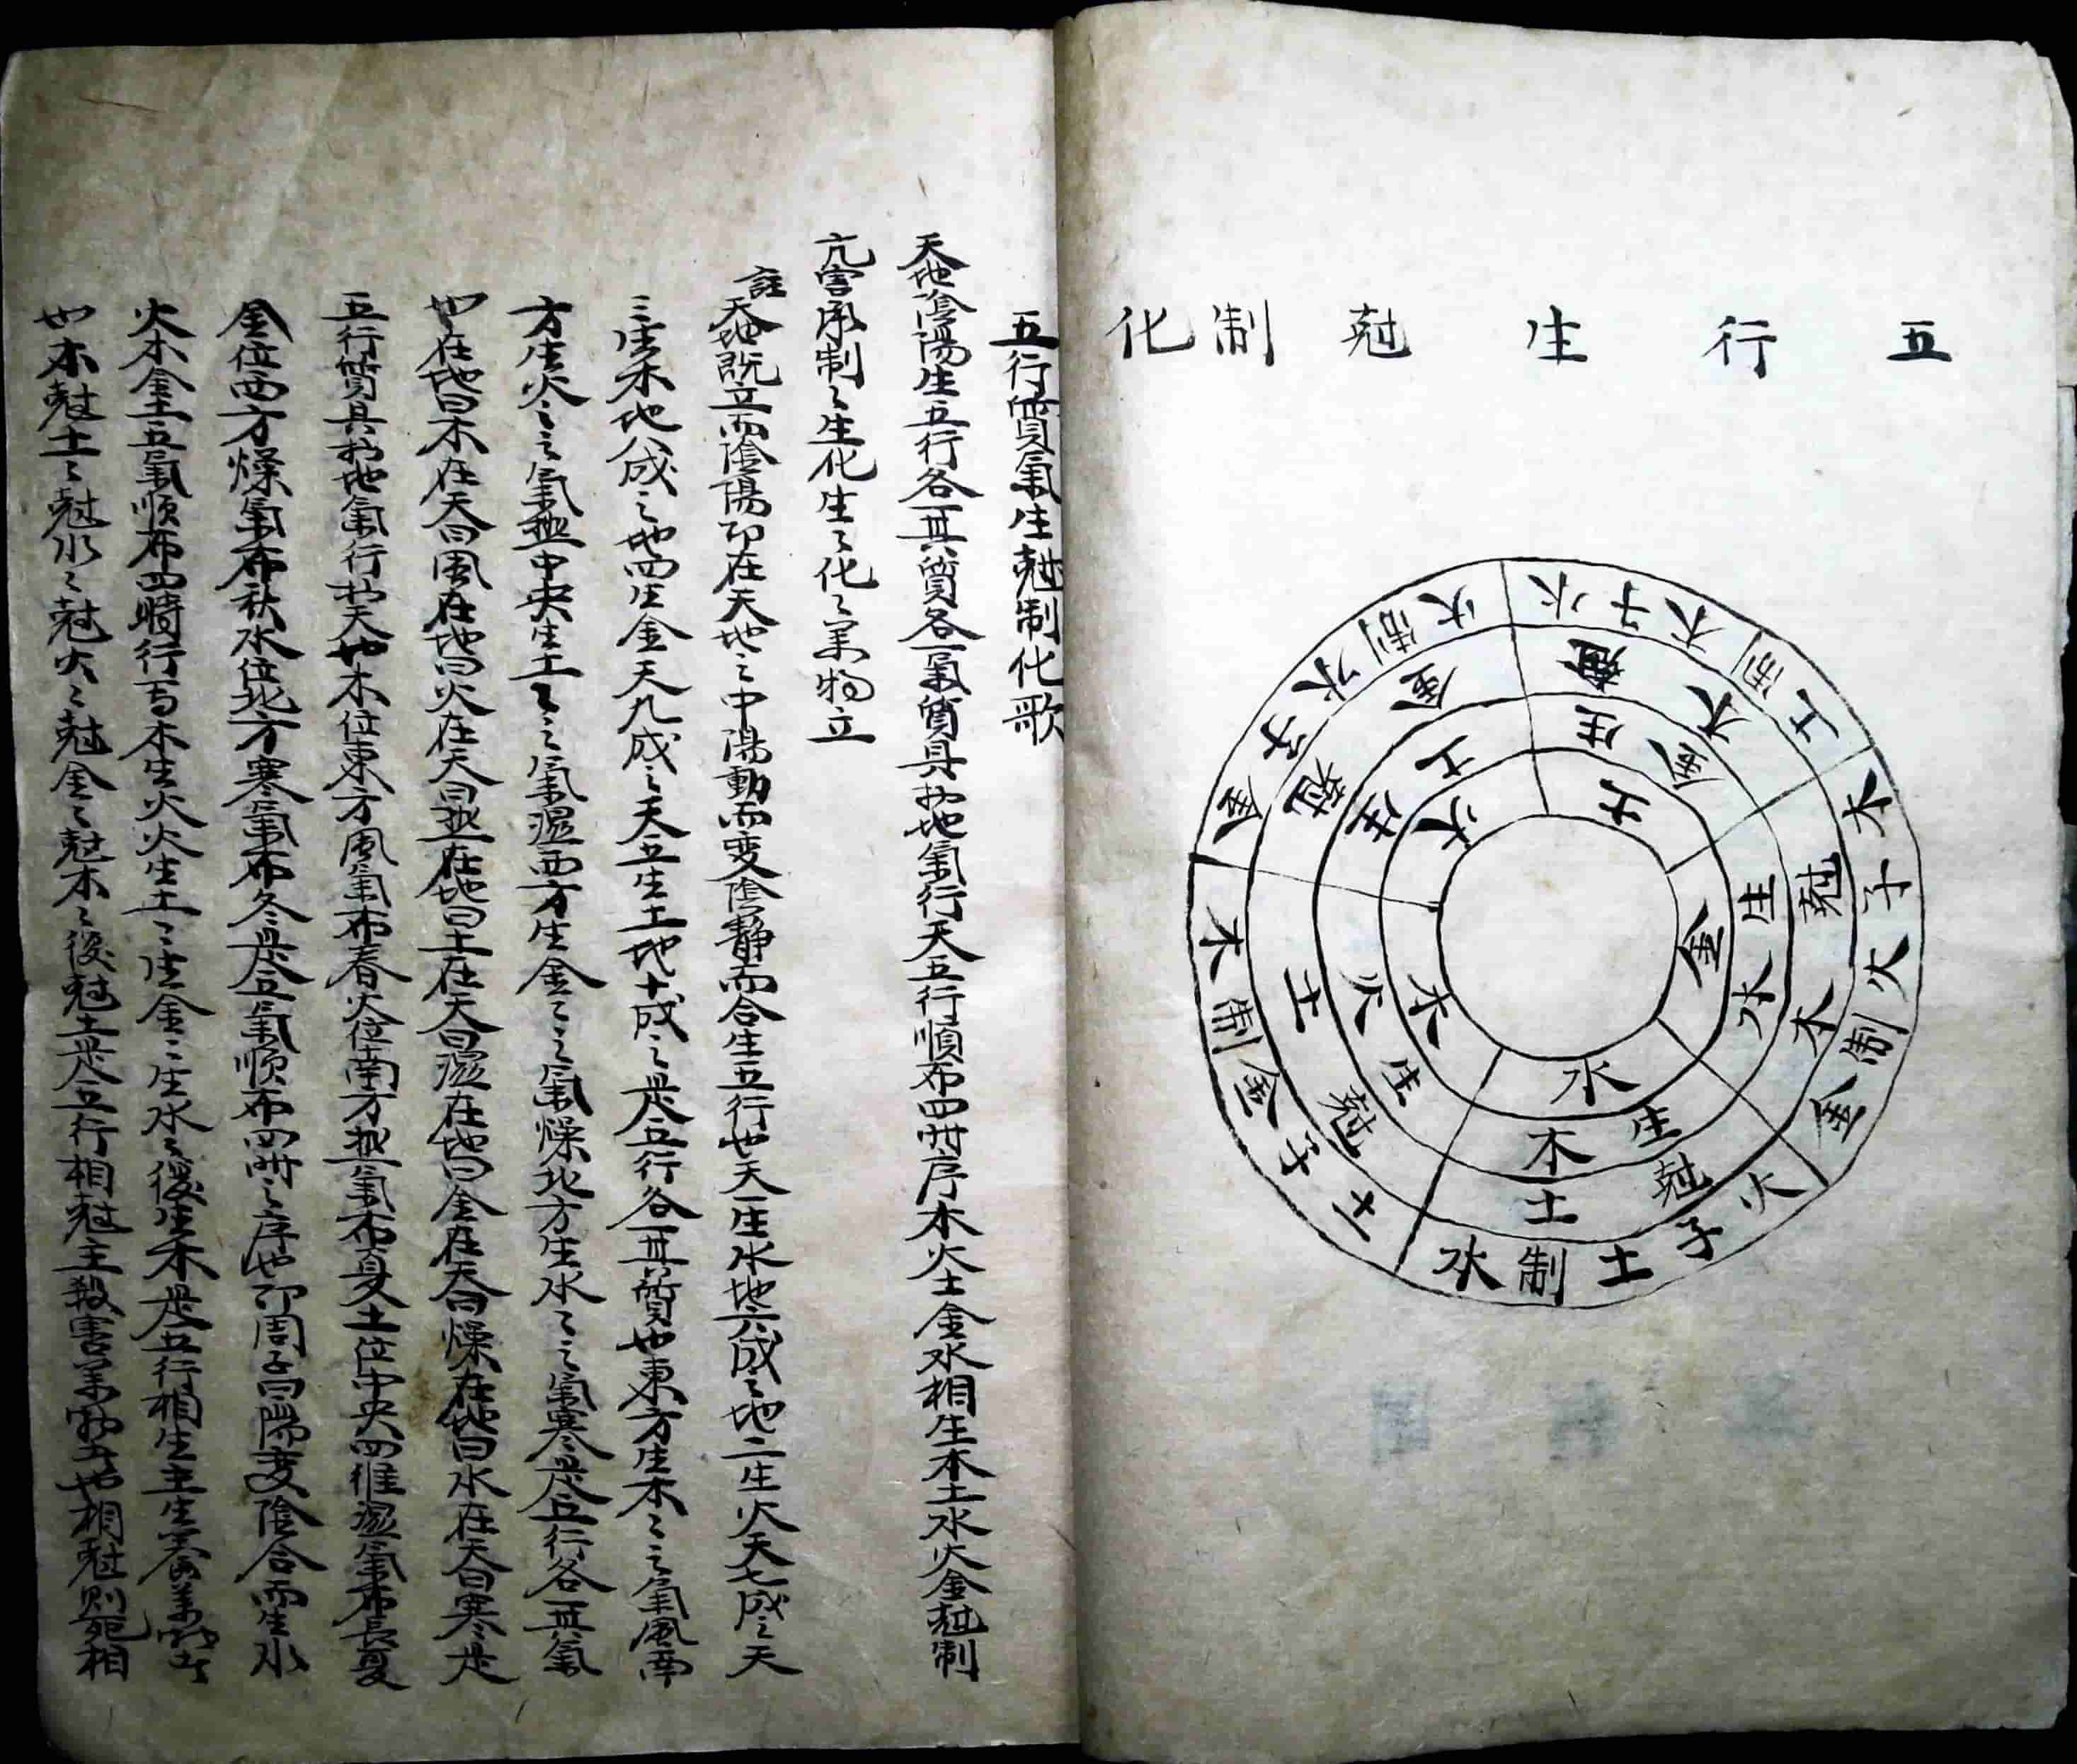 五行生尅制化
土 金 水 木 火
生金 生水 生木 生火 生土
尅木 尅木 尅土 尅土 尅金
水子木制土
木子火制金
火子土制水
土子金制木
金子水制火
五行質氣生尅制化歌
天地陰陽生五行各一其質各一氣質具扵地氣行天五行順布四时序木火土金水相生木土水火金尅制
亢害承制〻生化生〻化〻万物立
註天地既立而陰陽即在天地之中陽動而变陰静而合生五行也天一生水地六成之地二生火天七成之天
三生木地八成之地四生金天九成之天五生土地十成之是五行各一其質也東方生木〻之氣風南
方生火〻之氣热中央生土〻之氣濕西方生金〻之氣燥北方生水〻之氣寒是五行各一其氣
也在地曰木在天曰風在地曰火在天曰热在地曰土在天曰濕在地曰金在天曰燥在地曰水在天曰寒是
五行質具扵地氣行扵天也木位東方風氣布春火位南方热氣布夏土位中央四維濕氣布長夏
金位西方燥氣布秋水位北方寒氣布冬是五氣順布四时之序也即周子曰陽变陰合而生水
火木金土五氣順布四時行焉木生火火生土〻生金〻生水〻復生木是五行相生主生养萬物者
也木尅土〻尅水〻尅火〻尅金〻尅木〻復尅土是五行相尅主殺害萬物者也相尅則死相